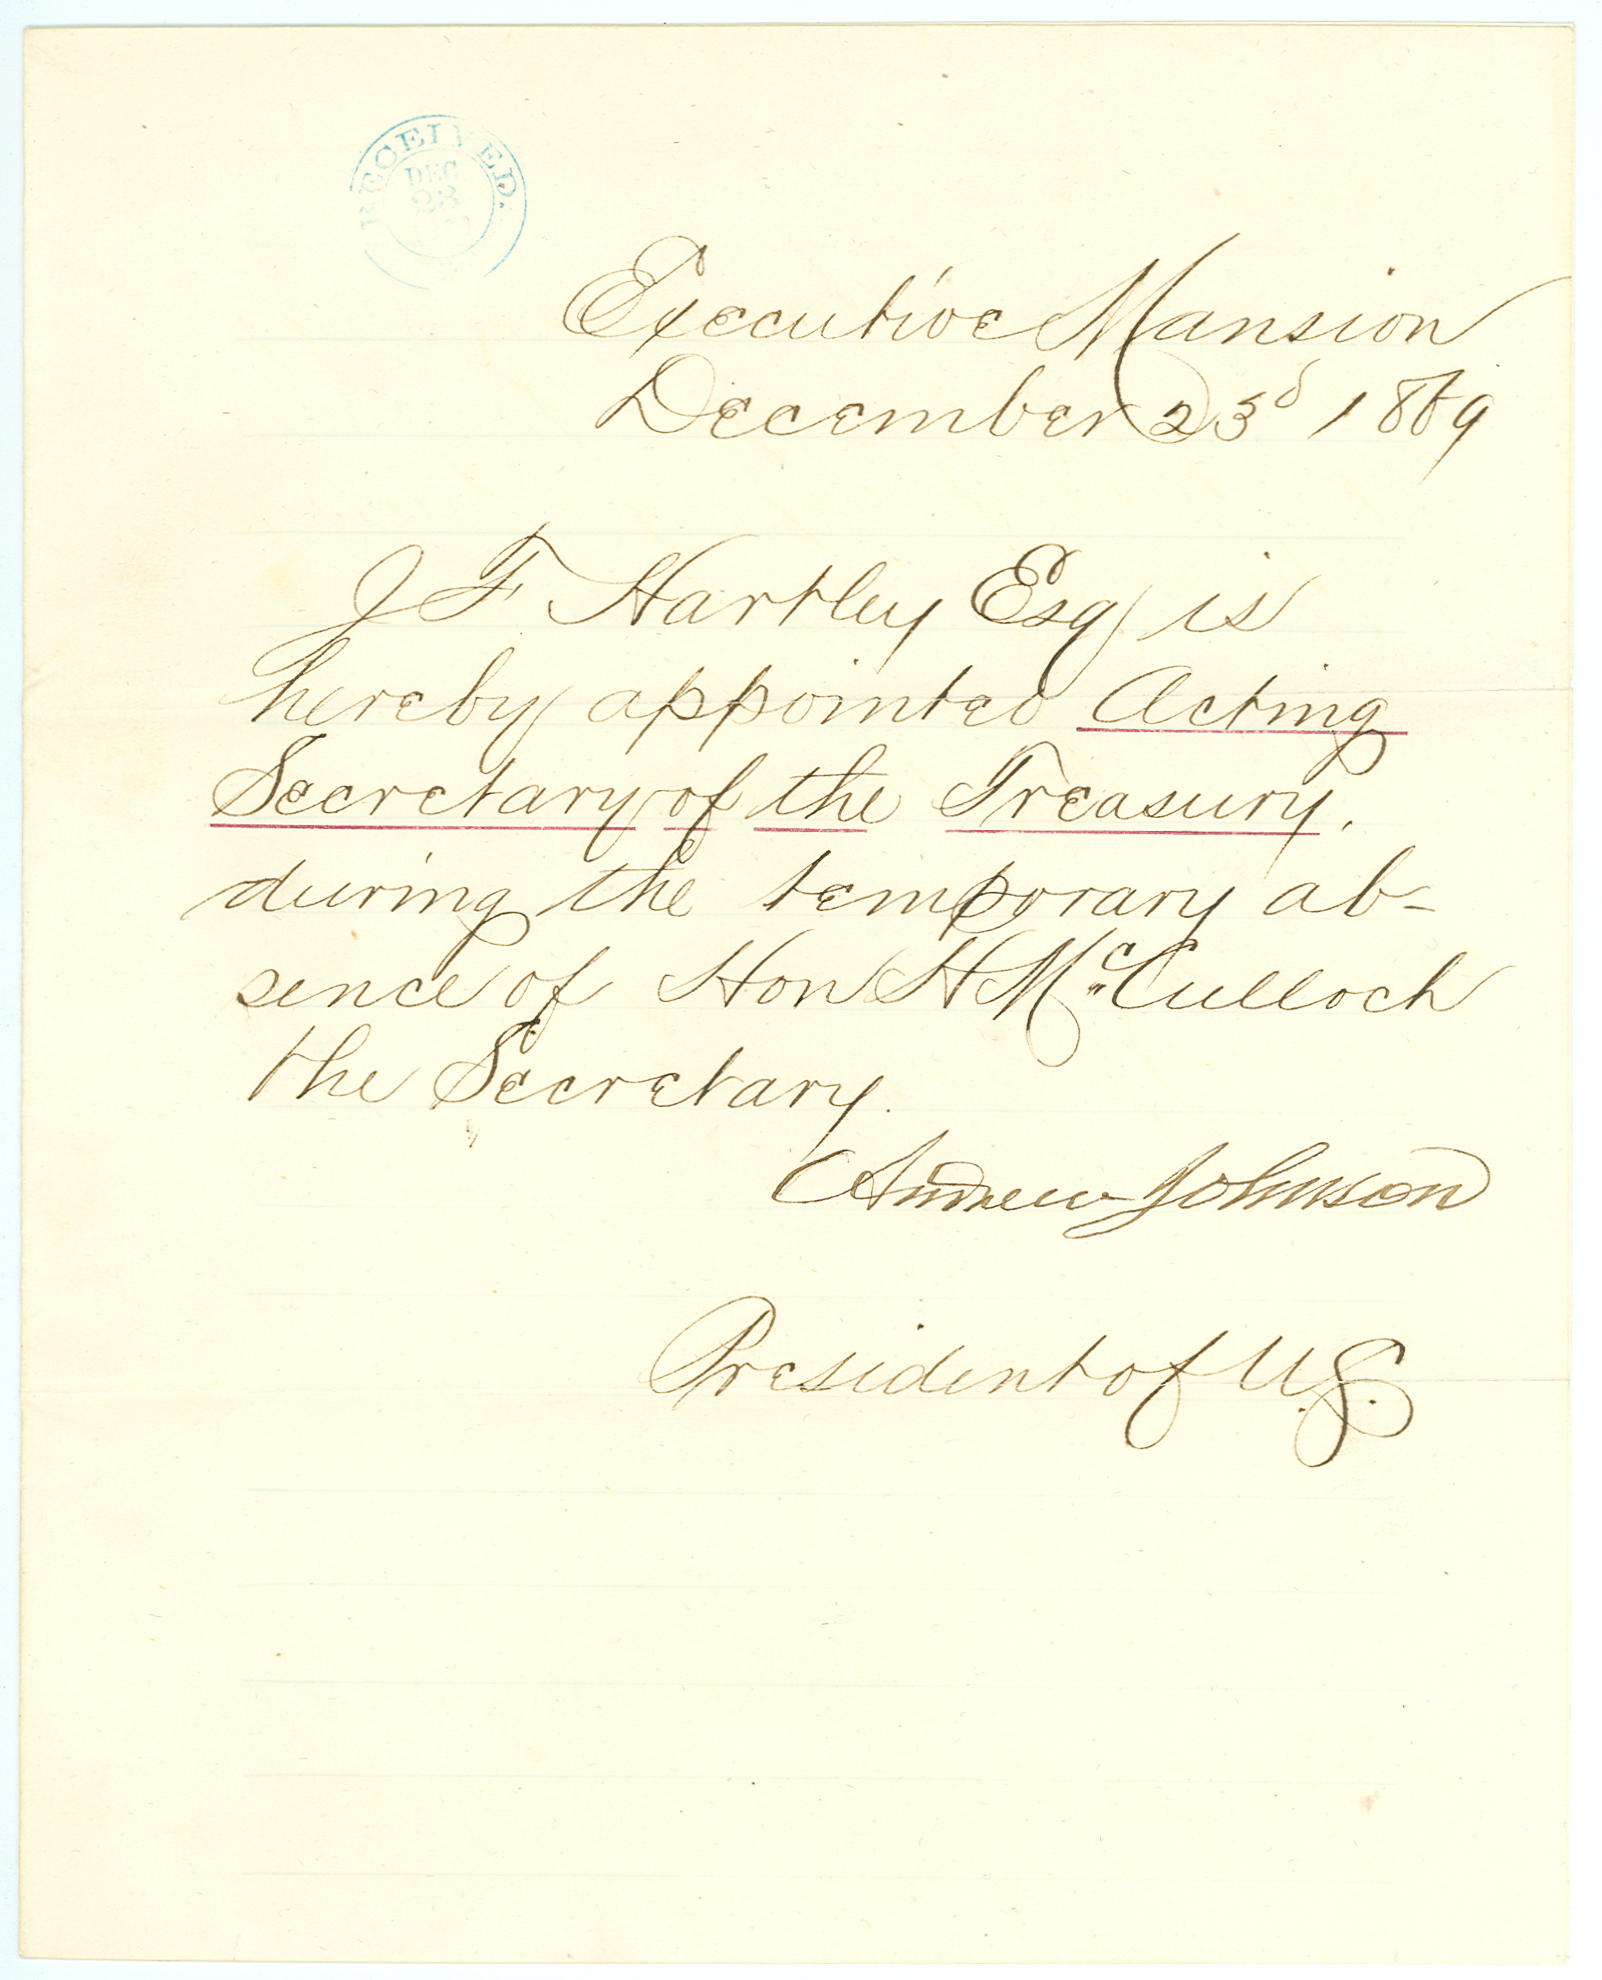 RECEIVED.
DEC
23
Executive Mansion
December 23d 1869
J F Hartley Esq is
hereby appointed Acting
Secretary of the Treasury.
during the temporary ab-
sence of Hon H McCulloch
the Secretary.
Andrew Johnson
President of U.S.